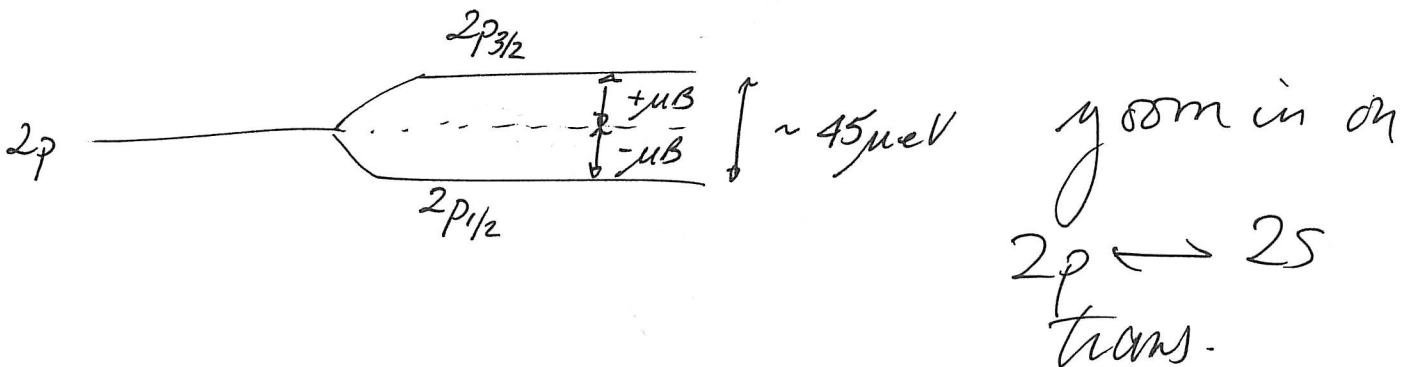 2p3/2
+μB
-μB
~ 45μeV
2p
2p1/2
zoom in on
2p ⟷ 2S
trans.